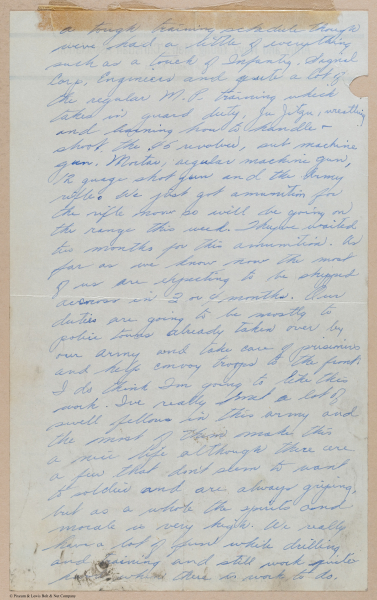 a tough training schedule though
weve had a little of everything
such as a touch of Infantry, Signal
Corp, Engineers and quite a lot of
the regular M.P. training which
takes in guard duty, Ju Jitzu, wrestling
and training how to handle &
shoot, the 45 revolver, sub machine
gun, Mortar, regular machine gun,
12 guage shot gun and the Army
rifle. We just got amunition for
the rifle now so will be going on
the range this week. Theyve waited
two months for this amunition. As
far as we know now the most
of us are expecting to be shipped
across in 2 or 4 months. Our
duties are going to be mostly to
police towns already taken over by
our army and take care of prisoners
and help convoy troops to the front.
I do think I'm going to like this
work. I've really met a lot of
swell fellows in this army and
the most of them make this
a nice life although there are
a few that dont seem to want
to soldier and are always griping,
but as a whole the spirits and
morale is very high. We really
have a lot of fun while drilling
and training and still work quite
hard when there is work to do.